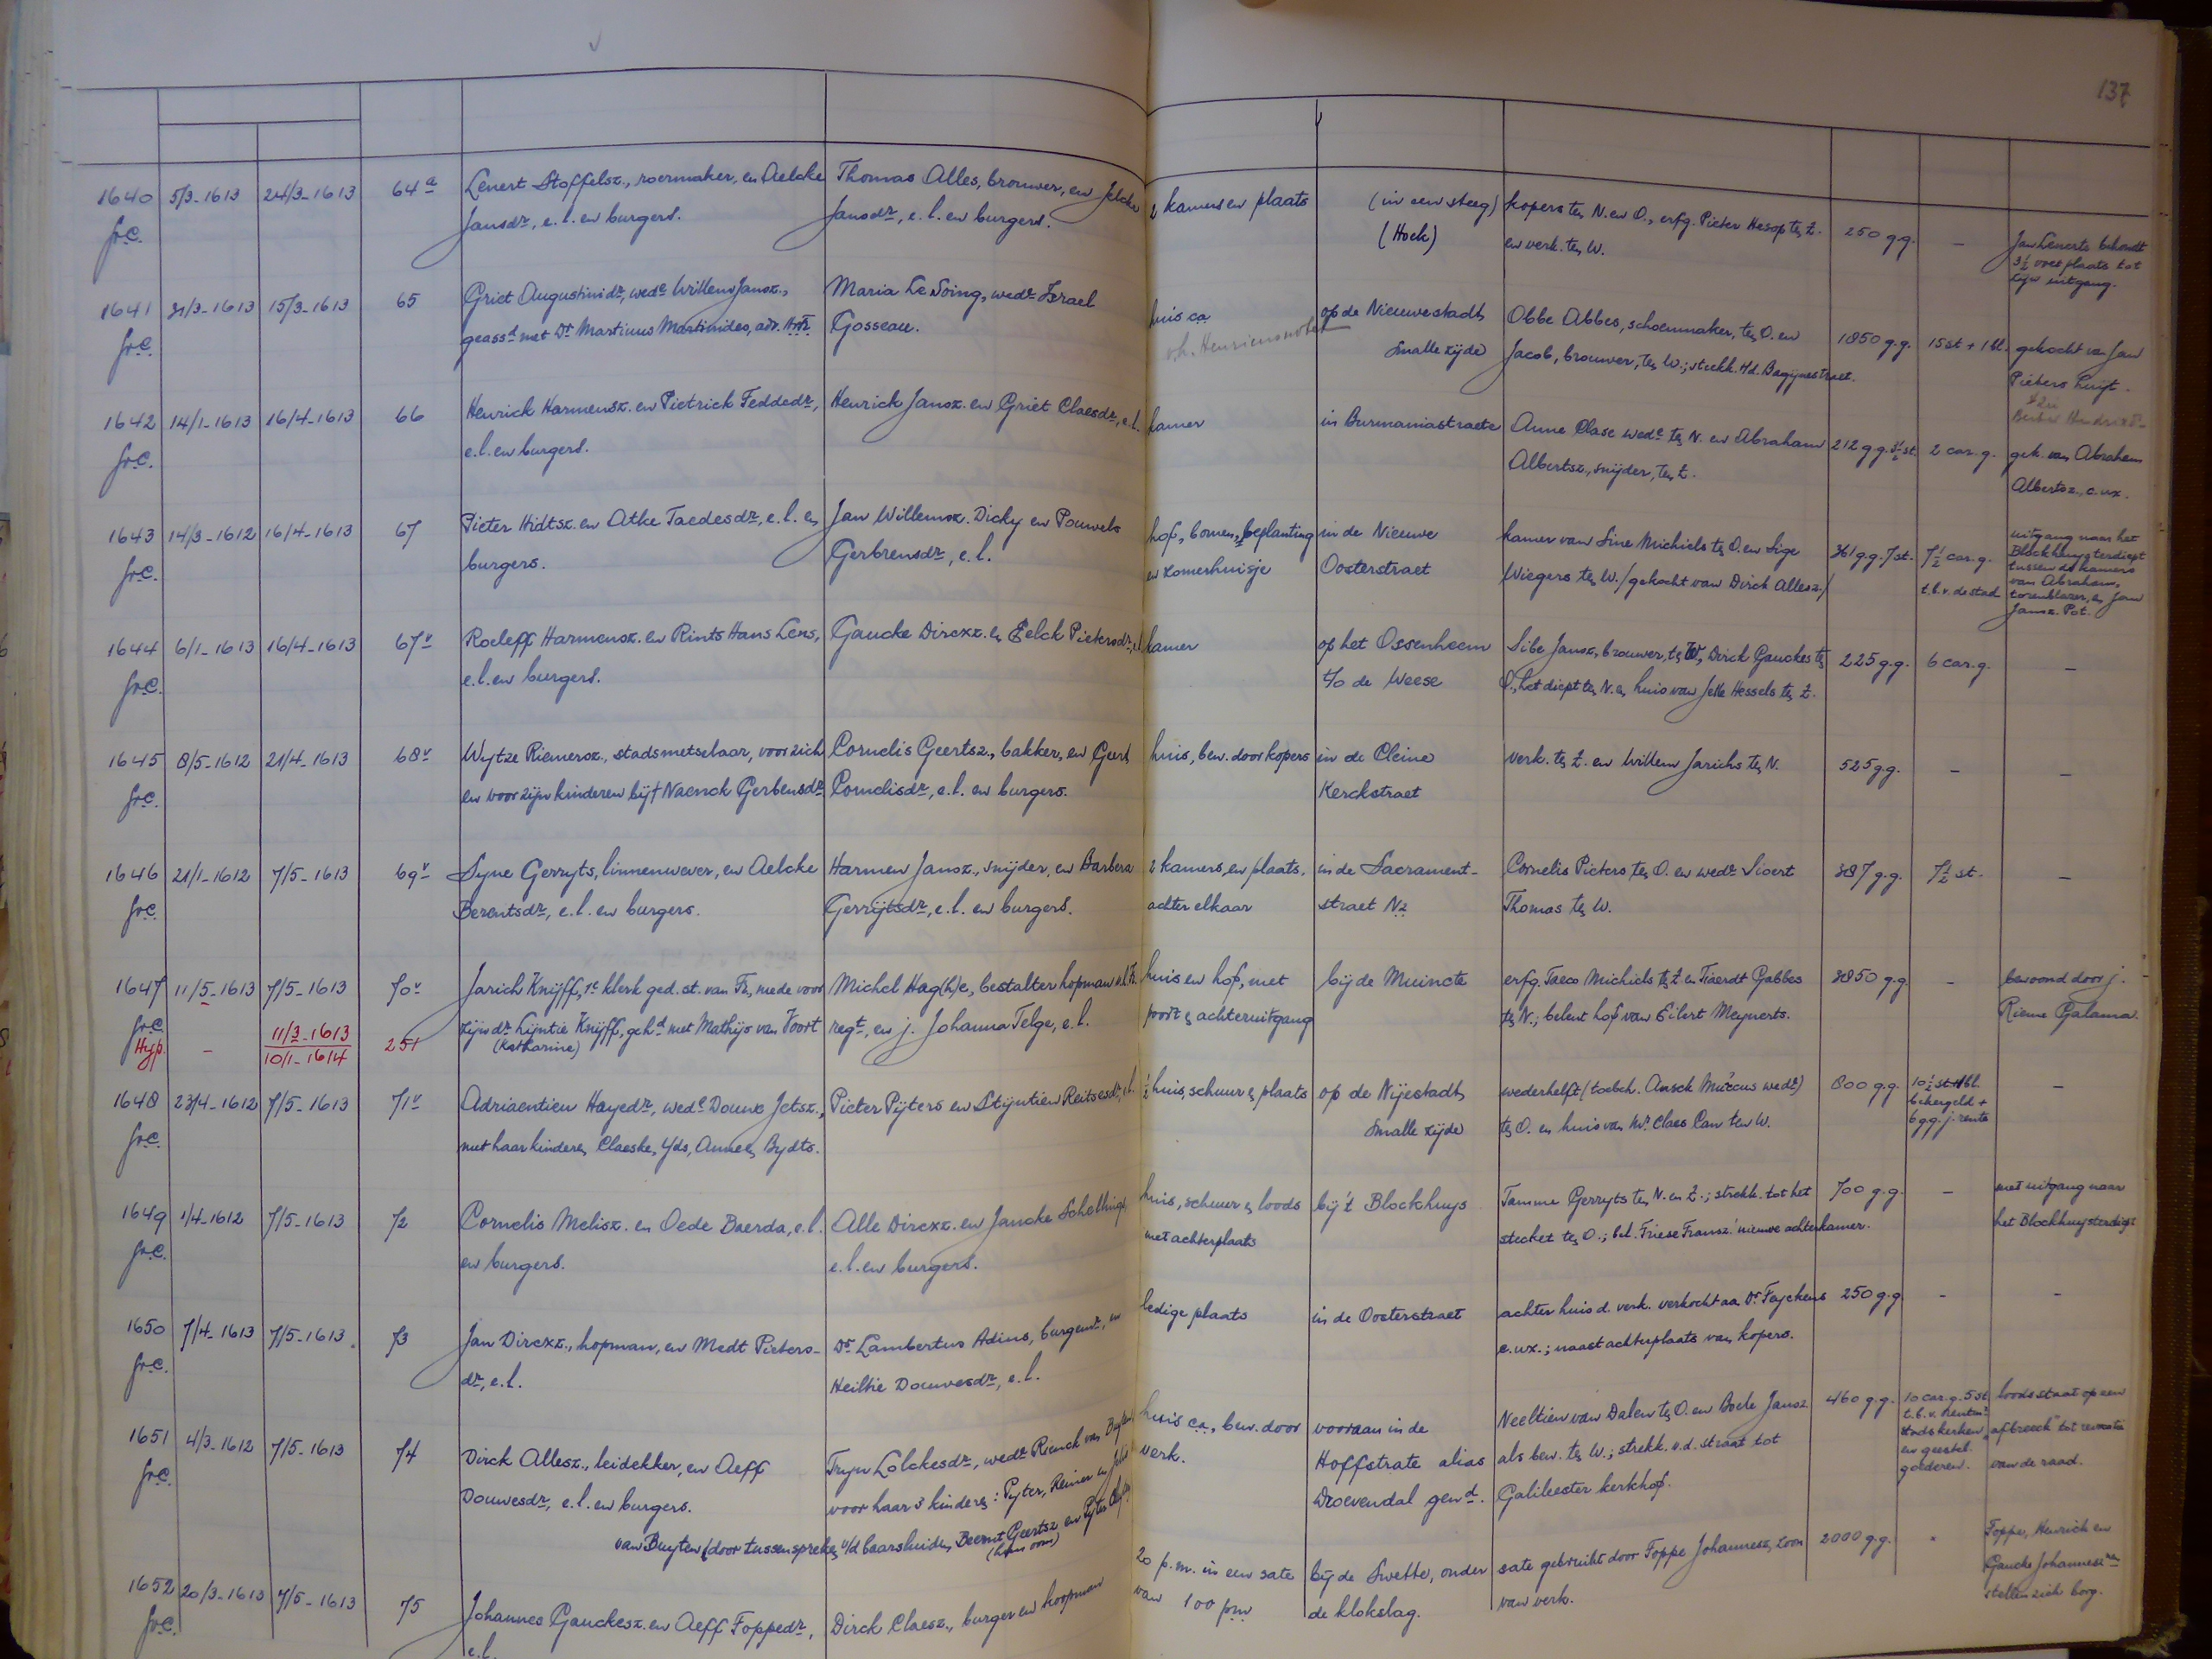 137
1640 5/3-1613 24/3-1613 64a Lenert Stoffelsz., roermaker, en Aelcke Thomas Alles, brouwer, en Jelcke 2 kamers en plaats (in een steeg) kopers ten N. en O., erfg. Pieter Hesop ten Z. 250 g.g. — Jan Lenerts behoudt
fr.e. Jansdr., e.l. en burgers. Jansdr., e.l. en burgers. (Hoek) en verk. ten W. 3½ voet plaats tot
zijn uitgang.
1641 31/3-1613 15/3-1613 65 Griet Augustinidr., wede Willem Jansz., Maria Le Soing, wedr. Israel huis ca op de Nieuwestadt Obbe Abbes, schoenmaker, ten O. en 1850 g.g. 15 st + 1 bl. gekocht van Jan
fr.e. geassd met Dr Martinus Martinides, adv. Gosseau. Smalle zijde Jacob, brouwer, ten W.; strekk. t/d. Bagijnestraet. Pieters
1642 14/1-1613 16/4-1613 66 Henrick Harmensz. en Pietrick Feddedr., Henrick Jansz. en Griet Claesdr., e.l. kamer in Burmaniastraete Anne Clase wede ten N. en Abraham 212 g.g. 2 car. g. gek. van Abraham
fr.e. e.l. en burgers. Albertsz., snijder, ten Z. Albertsz., c.ux.
1643 14/3-1612 16/4-1613 67 Pieter Hidtsz. en Atke Taedesdr., e.l. en Jan Willemsz. Dicky en Pouwels hof, bomen, beplanting in de Nieuwe kamer van Sine Michiels ten O. en Sige 361 g.g. 7 st. 7½ car. g. uitgang naar het
fr.e. burgers. Gerbrensdr., e.l. en zomerhuisje Oosterstraet Wiegers ten W. / gekocht van Dirck Allesz./ t.b.v. de stad Blockhuysterdiept
tussen de kamers
van Abraham,
torenblazer, en Jan
Jansz. Pot.
1644 6/1-1613 16/4-1613 67v Roeleff Harmensz. en Rints Hans Lens, Gaucke Dircxz. en Eelck Pietersdr., e.l. kamer op het Ossenheem Sibe Jansz., brouwer, ten W., Dirck Gauckes ten 225 g.g. 6 car. g. —
fr.e. e.l. en burgers. t/o de Weese O., het diept ten N. en huis van Jelle Hessels ten Z.
1645 8/5-1612 21/4-1613 68v Wytze Riemersz., stadsmetselaar, voor zich Cornelis Geertsz., bakker, en Geert huis, bew. door kopers in de Cleine verk. ten Z. en Willem Jarichs ten N. 525 g.g. — —
fr.e. en voor zijn kinderen bij † Naenck Gerbensdr. Cornelisdr., e.l. en burgers. Kerckstraet
1646 21/1-1612 7/5-1613 69v Syne Gerryts, linnenwever, en Aelcke Harmen Jansz., snijder, en Barbera 2 kamers en plaats, in de Sacrament- Cornelis Pieters ten O. en wedr. Sioert 387 g.g. 7½ st. —
fr.e. Berentsdr., e.l. en burgers. Gerrijtsdr., e.l. en burgers. achter elkaar straet Nz Thomas ten W.
1647 11/5-1613 7/5-1613 70v Jarich Knijff, 1e klerk ged. st. van Fr., mede voor Michel Hag(h)e, bestalter hopman huis en hof, met bij de Muincte erfg. Taeco Michiels ten Z en Tiaerdt Gabbes 3850 g.g. — bewoond door j.
fr.e. zijn dr. Lijntie Knijff, gehd met Mathijs van Voort regt., en j. Johanna Telge, e.l. poort en achteruitgang ten N.; belent hof van Eilert Meynerts. Rieme Galama.
Hyp. — 11/3-1613 251 (Katharine)
10/1-1614
1648 23/4-1612 7/5-1613 71v Adriaentien Hayedr., wede Douwe Jetsz., Pieter Pijters en Stijntien Reitsesdr., e.l. ½ huis, schuur en plaats op de Nijestadt wederhelft (toebeh. Ansck wedr.) 800 g.g. 10½ st. 1 bl.
fr.e. met haar kinderen, Claeske, Yds, Anne en Bydts. Smalle zijde ten O. en huis van Mr. Claes Can ten W. bekergeld +
6 g.g. j. rente —
1649 1/4-1612 7/5-1613 72 Cornelis Melisz. en Oede Baerda, e.l. Alle Dircxz. en Jancke Schellings huis, schuur en loods bij 't Blockhuys Tamme Gerryts ten N. en Z.; strekk. tot het 700 g.g. — met uitgang naar
fr.e. en burgers. e.l. en burgers. met achterplaats stecket ten O.; bel. Friese Fransz.' nieuwe achterkamer. het Blockhuysterdiept
1650 7/4-1613 7/5-1613. 73 Jan Dircxz., hopman, en Medt Pieters- Dr Lambertus Adius, burgemr., en ledige plaats in de Oosterstraet achter huis d. verk. verkocht aan Dr Feyckens 250 g.g. — —
fr.e. dr., e.l. Heilkie Douwesdr., e.l. c.ux.; naast achterplaats van kopers.
1651 4/3-1612 7/5-1613 74 Dirck Allesz., leidekker, en Aeff Tryn Lolckesdr., wedr. Rienck van Buyten huis ca, bew. door vooraan in de Neeltien van Dalen ten O. en Bode Jansz 460 g.g. 10 car. g. 5 st loods staat op een
fr.e. Douwesdr., e.l. en burgers. voor haar 3 kinderen: Pyter, Reiner en verk. Hoffstrate alias als bew. ten W.; strekk. v.d. straat tot t.b.v. stadskerken „afbreeck" tot
van Buyten (door tussenspreken v/d baarshuiden, Beernt Geertsz en Pyter Droevendal gend. Galileester kerkhof. en geestel. goederen. van de raad.
(hun oom)
1652 20/3-1613 7/5-1613 75 Johannes Gauckesz. en Aeff Foppedr., Dirck Claesz., burger en koopman 20 p.m. in een sate bij de Swette, onder sate gebruikt door Foppe Johannesz., zoon 2000 g.g. - Foppe, Henrick en
fr.e. e.l. van 100 pm de klokslag. van verk. Gaucke Johannesz.
stellen zich borg.